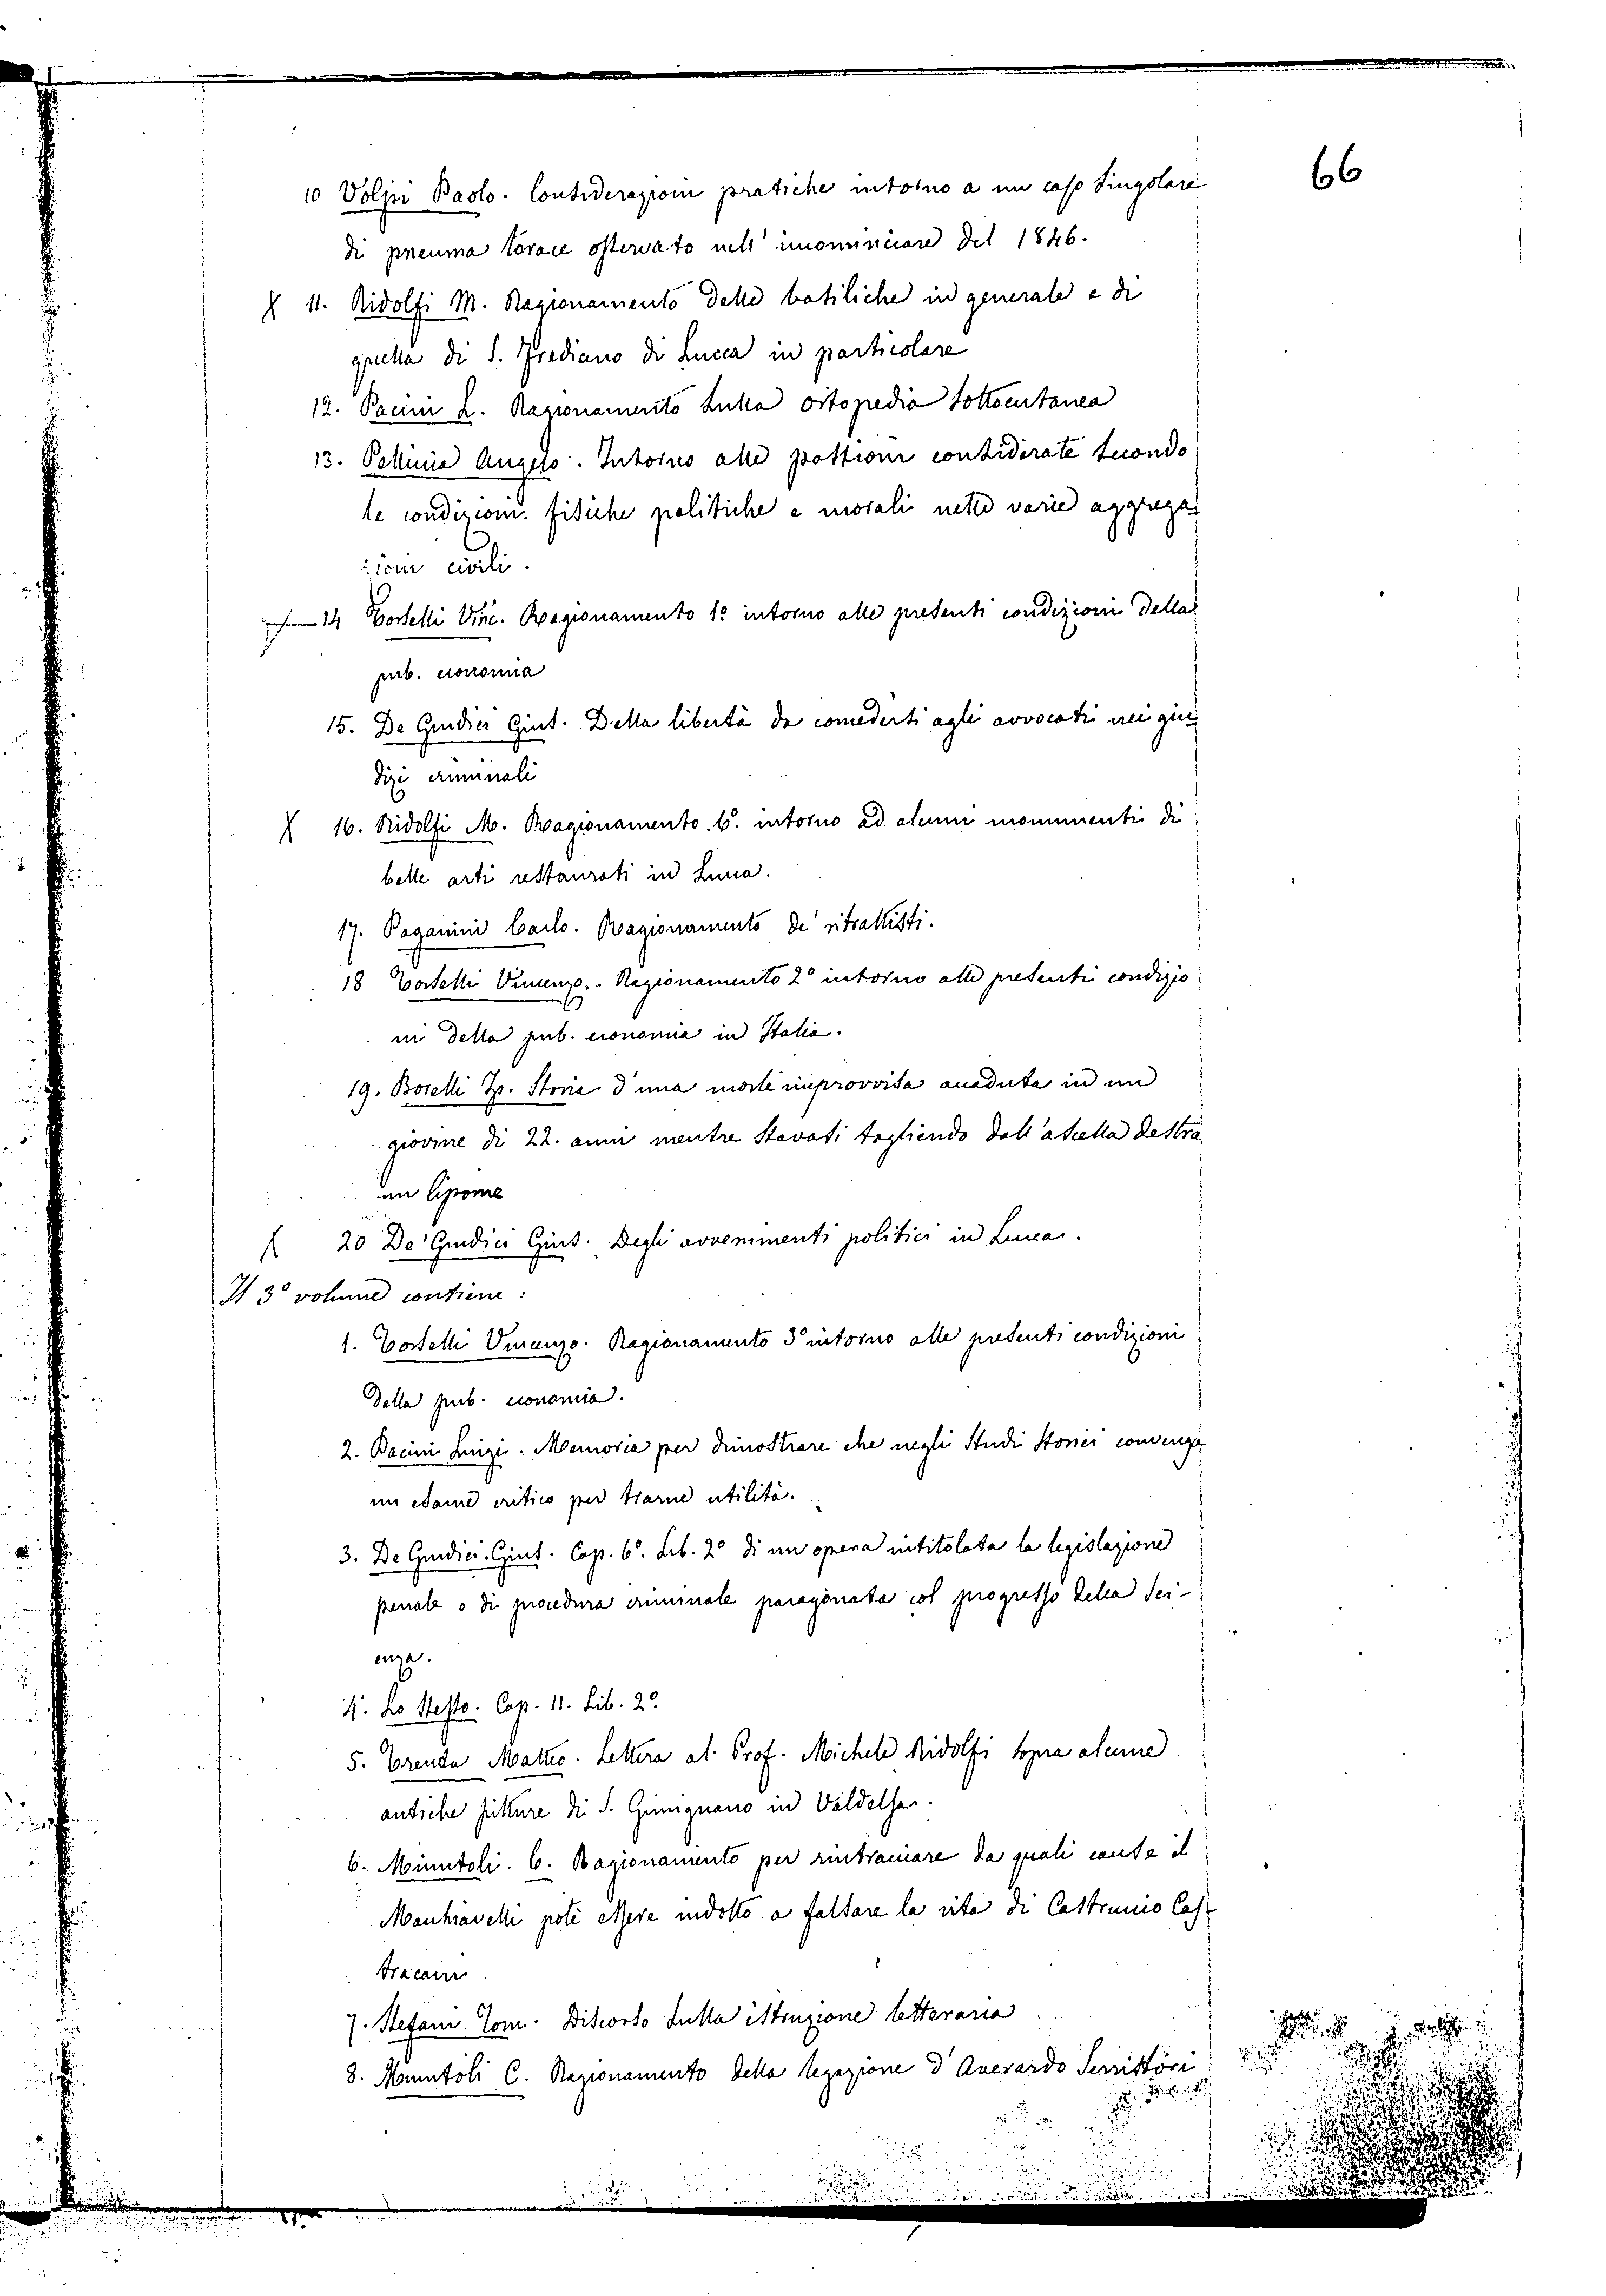 66
10 Volpi Paolo. Considerazioni pratiche intorno a un caso singolare
di pneuma torace osservato nell' incominciare del 1846.
X 11. Ridolfi M. Ragionamento delle basiliche in generale e di
quella di S. Frediano di Lucca in particolare
12. Pacini L. Ragionamento sulla ortopedia sottocutanea
13. Pellinia Angelo. Intorno alle passioni considerate secondo
le condizioni fisiche politiche e morali nelle varie aggrega
zioni civili.
14 Torselli Vinc. Ragionamento 1º intorno alle presenti condizioni della
pub. economia
15. De Giudici Gius. Della libertà da concedersi agli avvocati nei giu
dizi criminali
X 16. Ridolfi M. Ragionamento 6. intorno ad alcuni monumenti di
belle arti restaurati in Lucca.
17. Paganini Carlo. Ragionamento de' ritrattisti.
18 Torselli Vincenzo. Ragionamento 2º intorno alle presenti condizio
ni della pub. economia in Italia.
19. Borelli Fr. Storia d'una morte improvvisa accaduta in un
giovine di 22. anni mentre stavasi togliendo dall'ascella destra
un lipome
X 20 De' Giudici Gius. Degli avvenimenti politici in Lucca.
Il 3º volume contiene:
1. Torselli Vincenzo. Ragionamento 3º intorno alle presenti condizioni
della pub. economia.
2. Pacini Luigi. Memoria per dimostrare che negli Studi storici convenga
un esame critico per trarne utilità.
3. De Giudici Gius. Cap. 6º. Lib. 2º di un opera intitolata la legislazione
penale o di procedura criminale paragonata col progresso della sci-
enza.
4. Lo stesso. Cap. 11. Lib. 2º
5. Trenta Matteo. Lettera al Prof. Michele Ridolfi sopra alcune
antiche pitture di S. Gimignano in Valdelsa.
6. Minutoli. C. Ragionamento per rintracciare da quali cause il
Macchiavelli poté essere indotto a falsare la vita di Castruccio Cas-
tracani
7. Stefani Tom. Discorso sulla istruzione letteraria
8. Minutoli C. Ragionamento della legazione d'Averardo Serristori